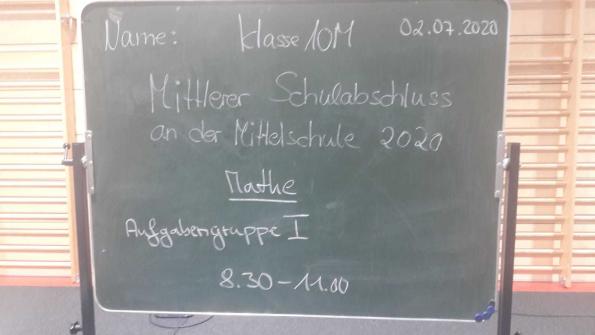 Name: Klasse 10M 02.07.2020
Mittlerer Schulabschluss
an der Mittelschule 2020
Mathe
Aufgabengruppe I
8.30 - 11.00